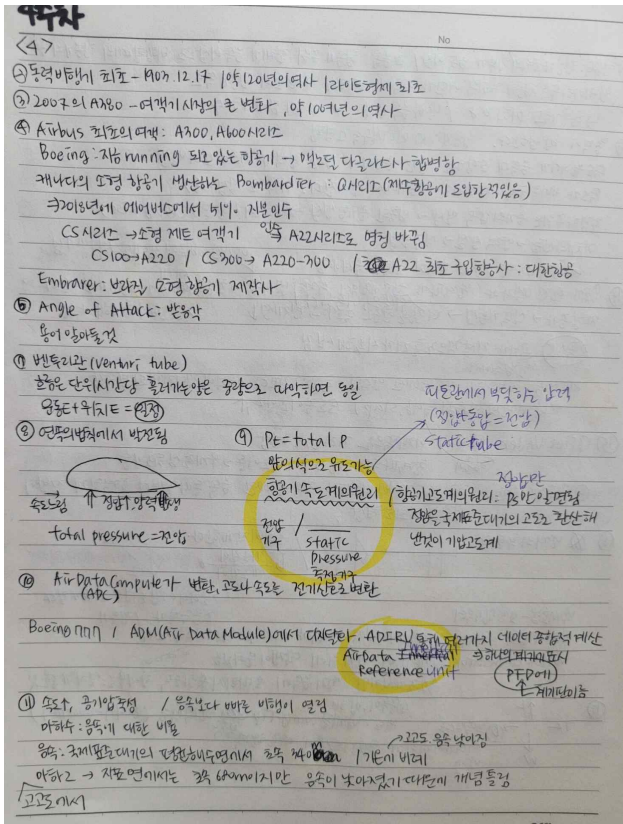 4주차
No
<4>
② 동력비행기 최초 - 1903.12.17 / 약 120년의 역사 / 라이트형제 최초
③ 2007의 A380 - 여객기 시장의 큰 변화, 약 10여년의 역사
④ Airbus 최초의 여객: A300, A600시리즈
Boeing: 지금 running 되고 있는 항공기 → 맥도널 더글라스사 합병함
캐나다의 소형 항공기 생산하는 Bombardier: Q시리즈 (제주항공에 도입한 적 있음)
⇒ 2018년에 에어버스에서 51% 지분인수
CS시리즈 → 소형 제트 여객기 인수 → A22시리즈로 명칭 바꿈
CS100 → A220 / CS300 → A220-300 / A22 최초 구입항공사: 대한항공
Embrarer: 브라질 소형 항공기 제작사
⑤ Angle of Attack: 받음각
용어 알아둘것
⑦ 벤투리관 (Venturi tube)
흐름은 단위시간당 흘러가는 양은 중량으로 따악하면 동일
운동E + 위치E = 일정
피토관에서 부딪히는 압력
(정압+동압=전압)
static tube
⑧ 연속의 법칙에서 발전됨
속도느림 정압↑ 양력발생
total pressure = 전압
⑨ Pt = total P
앞의식으로 유도가능
항공기 속도계의 원리
전압기구 / static pressure 측정기구
/ 항공기고도계의원리: Ps만 알면됨
정압만
정압을 국제표준대기의 고도로 환산해
낸것이 기압고도계
⑩ Air Data Compute가 변환, 고도나 속도는 전기신호로 변환
(ADC)
Boeing 777 / ADM (Air Data Module)에서 디지털화. ADIRU 통해 여러가지 데이터 종합적 계산
Air Data Inertial Reference unit
⇒ 하나의 계기가 표시
PFD에
계기판이름
⑪ 속도↑, 공기압축성 / 음속보다 빠른 비행이 열림
마하수: 음속에 대한 비율
음속: 국제표준대기의 평균해수면에서 초속 340m / 기온에 비례
→ 고고도 음속 낮아짐
마하2 → 지표면에서는 초속 680m이지만 음속이 낮아졌기 때문에 개념 틀림
고고도에서